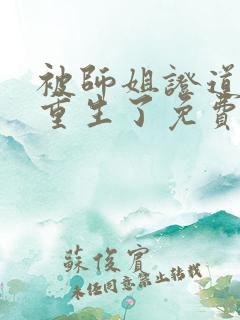 被師姐證道
重生了免費
蘇俊賓
未經同意禁止轉載